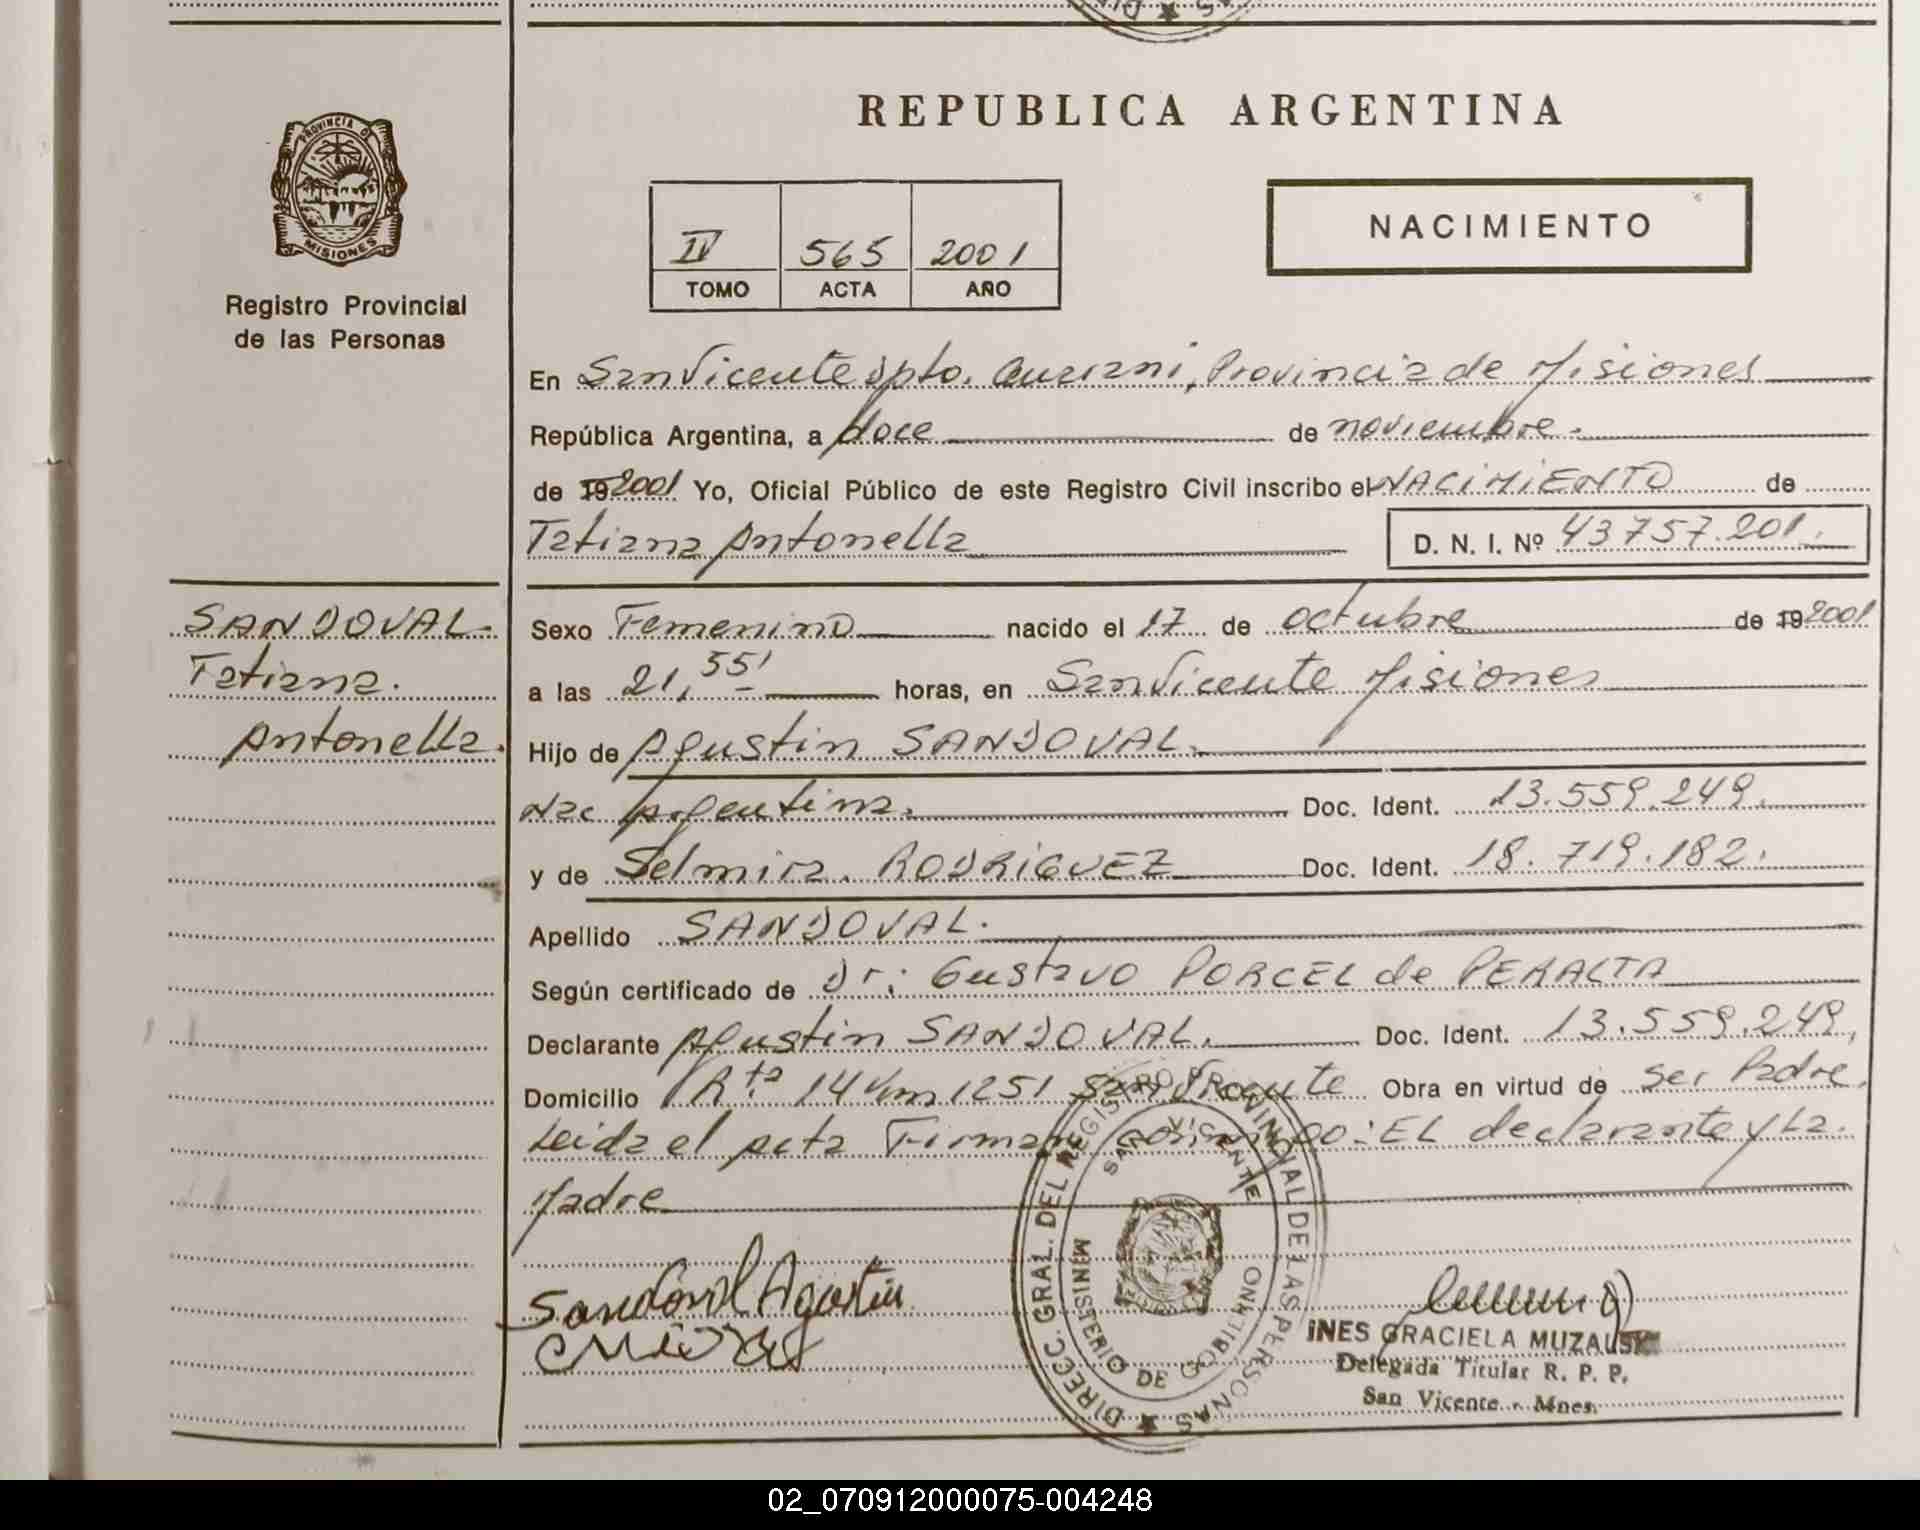 REPUBLICA ARGENTINA
PROVINCIA DE
MISIONES
Registro Provincial
de las Personas
IV 565 2001
TOMO ACTA AÑO
NACIMIENTO
En San Vicente Dpto. Guarani, Provincia de Misiones
República Argentina, a doce de noviembre.
de 19 2001 Yo, Oficial Público de este Registro Civil inscribo el NACIMIENTO de
Tatiana Antonella D. N. I. Nº 43 757.201.
SANDOVAL.
Tatiana.
Antonella.
Sexo Femenino nacido el 17 de octubre de 19 2001
a las 21,55' horas, en San Vicente Misiones
Hijo de Agustin SANDOVAL.
Nac Argentina. Doc. Ident. 13.559.249.
y de Selmira. RODRIGUEZ Doc. Ident. 18.719.182.
Apellido SANDOVAL.
Según certificado de Dr: Gustavo PORCEL de PERALTA
Declarante Agustin SANDOVAL. Doc. Ident. 13.559.249,
Domicilio Rta 14 Km 1251 San Vicente Obra en virtud de ser Padre.
Leida el acta Firman conmigo: EL declarante y La.
Madre
Sandoval Agustin
DIRECC. GRAL. DEL REGISTRO PROVINCIAL DE LAS PERSONAS
SAN VICENTE
MINISTERIO DE GOBIERNO
INES GRACIELA MUZALSKI
Delegada Titular R. P. P.
San Vicente - Mnes.
02_070912000075-004248